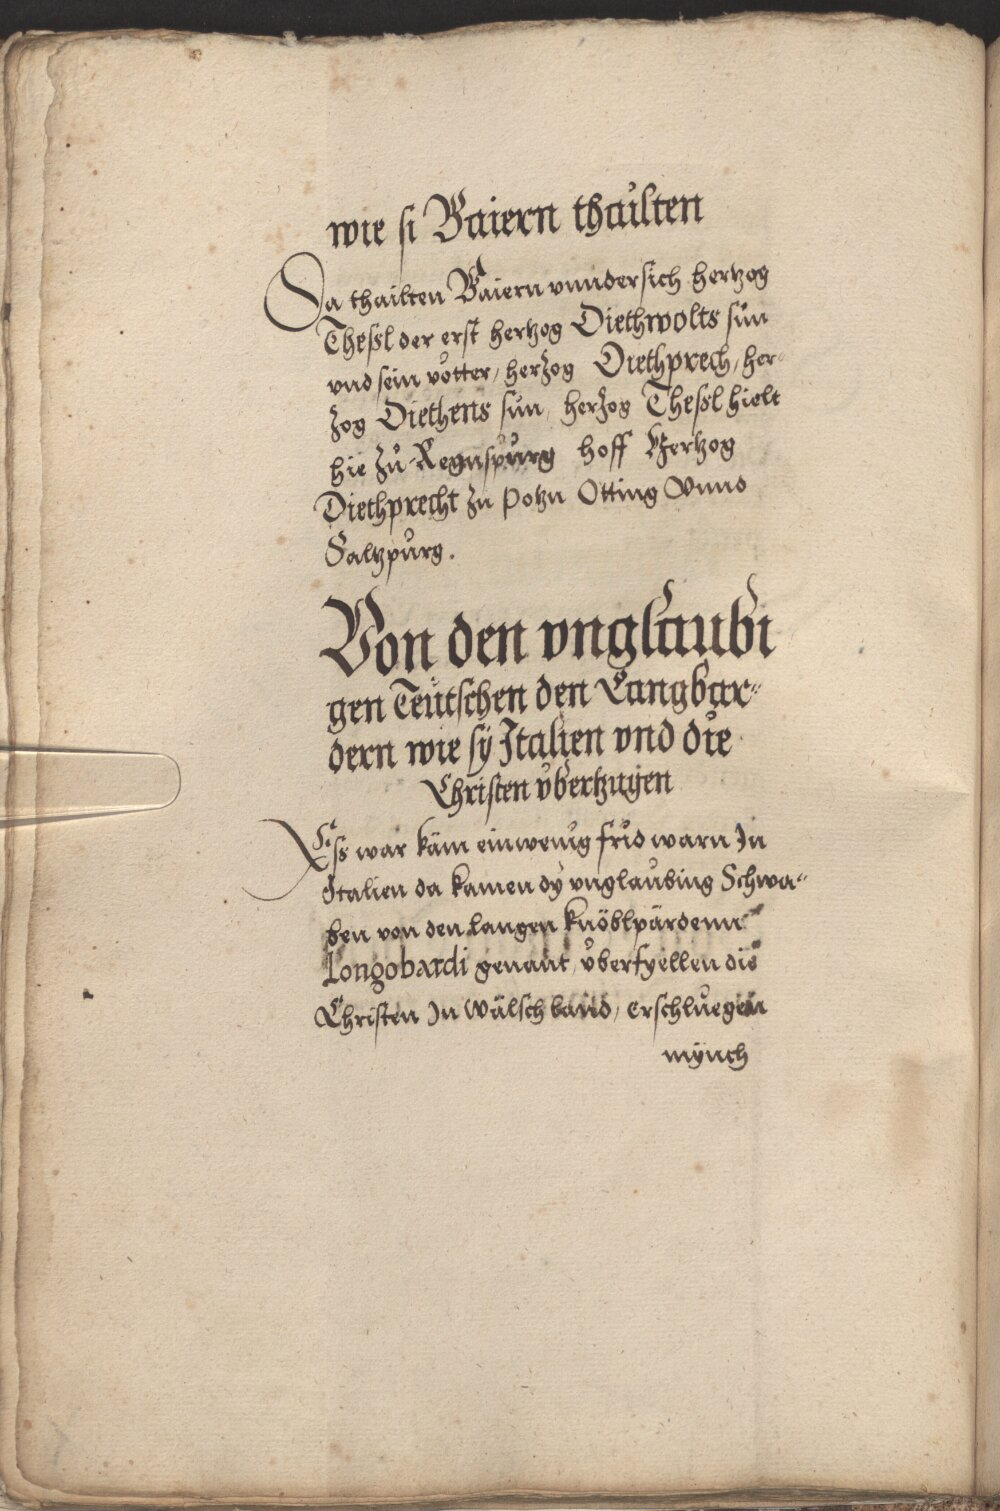 wie si Baiern thailten
Da thailten Baiern vnnder sich hertzog
Thessl der erst hertzog Diethwolts sůn
vnd sein vötter / hertzog Diethprech / her-
tzog Diethens sůn / hertzog Thessl hielt
hie zů Regnspůrg hoff Hertzog
Diethprecht zu Potzn Otting Vnnd
Saltzpůrg .
Von den vnglaubi
gen Teütschen den Langbar⸗
dern wie sÿ Italien vnd die
Christen vbertzugen
Ess war käm ein wenig frid warn In
Italien da kamen dÿ vnglaubing Schwa⸗
ben von den langen knöblpärdenn
Longobardi genant / vberfyellen die
Christen In Wälschland / erschluegen
mÿnch